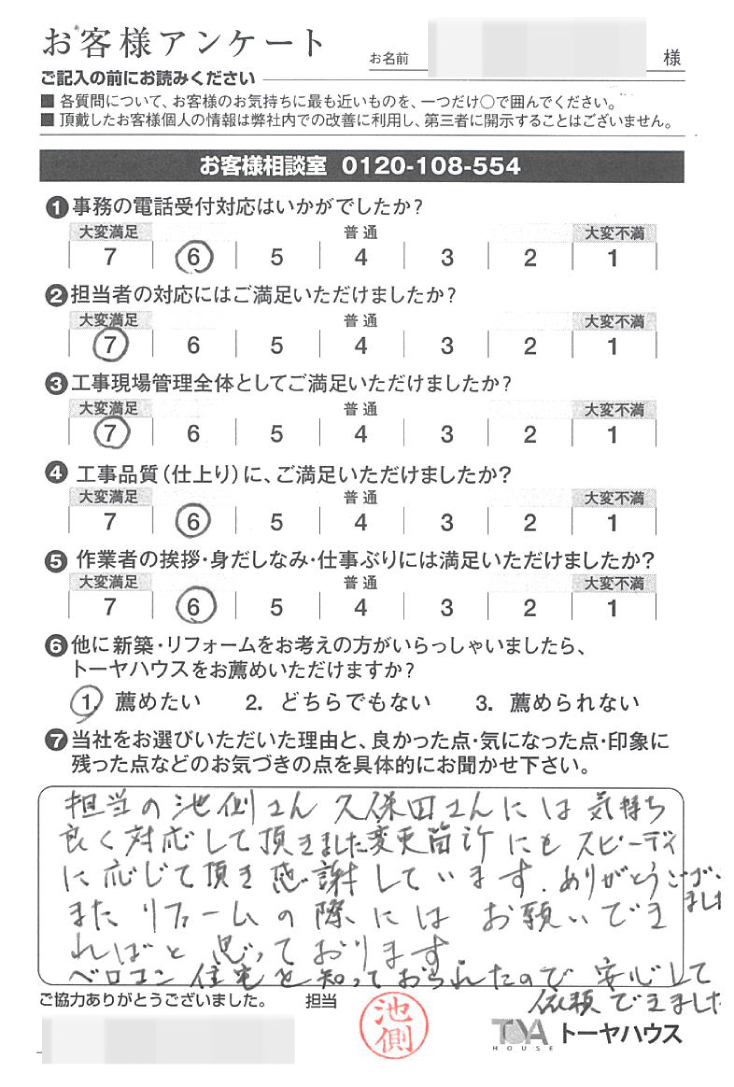 お客様アンケート
お名前 様
ご記入の前にお読みください
■ 各質問について、お客様のお気持ちに最も近いものを、一つだけ○で囲んでください。
■ 頂戴したお客様個人の情報は弊社内での改善に利用し、第三者に開示することはございません。
お客様相談室 0120-108-554
❶事務の電話受付対応はいかがでしたか?
大変満足 普通 大変不満
7 6 5 4 3 2 1
❷担当者の対応にはご満足いただけましたか?
大変満足 普通 大変不満
7 6 5 4 3 2 1
❸工事現場管理全体としてご満足いただけましたか?
大変満足 普通 大変不満
7 6 5 4 3 2 1
❹工事品質(仕上り)に、ご満足いただけましたか?
大変満足 普通 大変不満
7 6 5 4 3 2 1
❺作業者の挨拶・身だしなみ・仕事ぶりには満足いただけましたか?
大変満足 普通 大変不満
7 6 5 4 3 2 1
❻他に新築・リフォームをお考えの方がいらっしゃいましたら、
トーヤハウスをお薦めいただけますか?
1. 薦めたい 2. どちらでもない 3. 薦められない
❼当社をお選びいただいた理由と、良かった点・気になった点・印象に
残った点などのお気づきの点を具体的にお聞かせ下さい。
担当の池側さん久保田さんには気持ち
良く対応して頂きました変更箇所にもスピーディ
に応じて頂き感謝しています。ありがとうござい
ました
また リフォームの際にはお願いでき
ればと思っております
ベロコン住宅を知っておられたので安心して
依頼できました
ご協力ありがとうございました。 担当
池側
TOYA HOUSE トーヤハウス